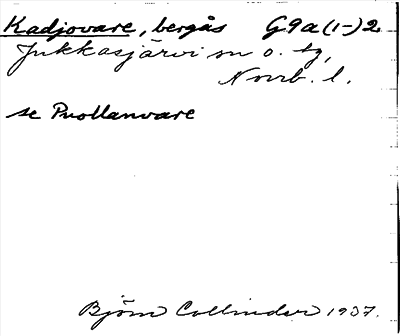 Kadjovare, bergås G9a(1-)2
Jukkasjärvi sn o. tg,
Norrb. l.
se Puollanvare
Björn Collinder 1937.